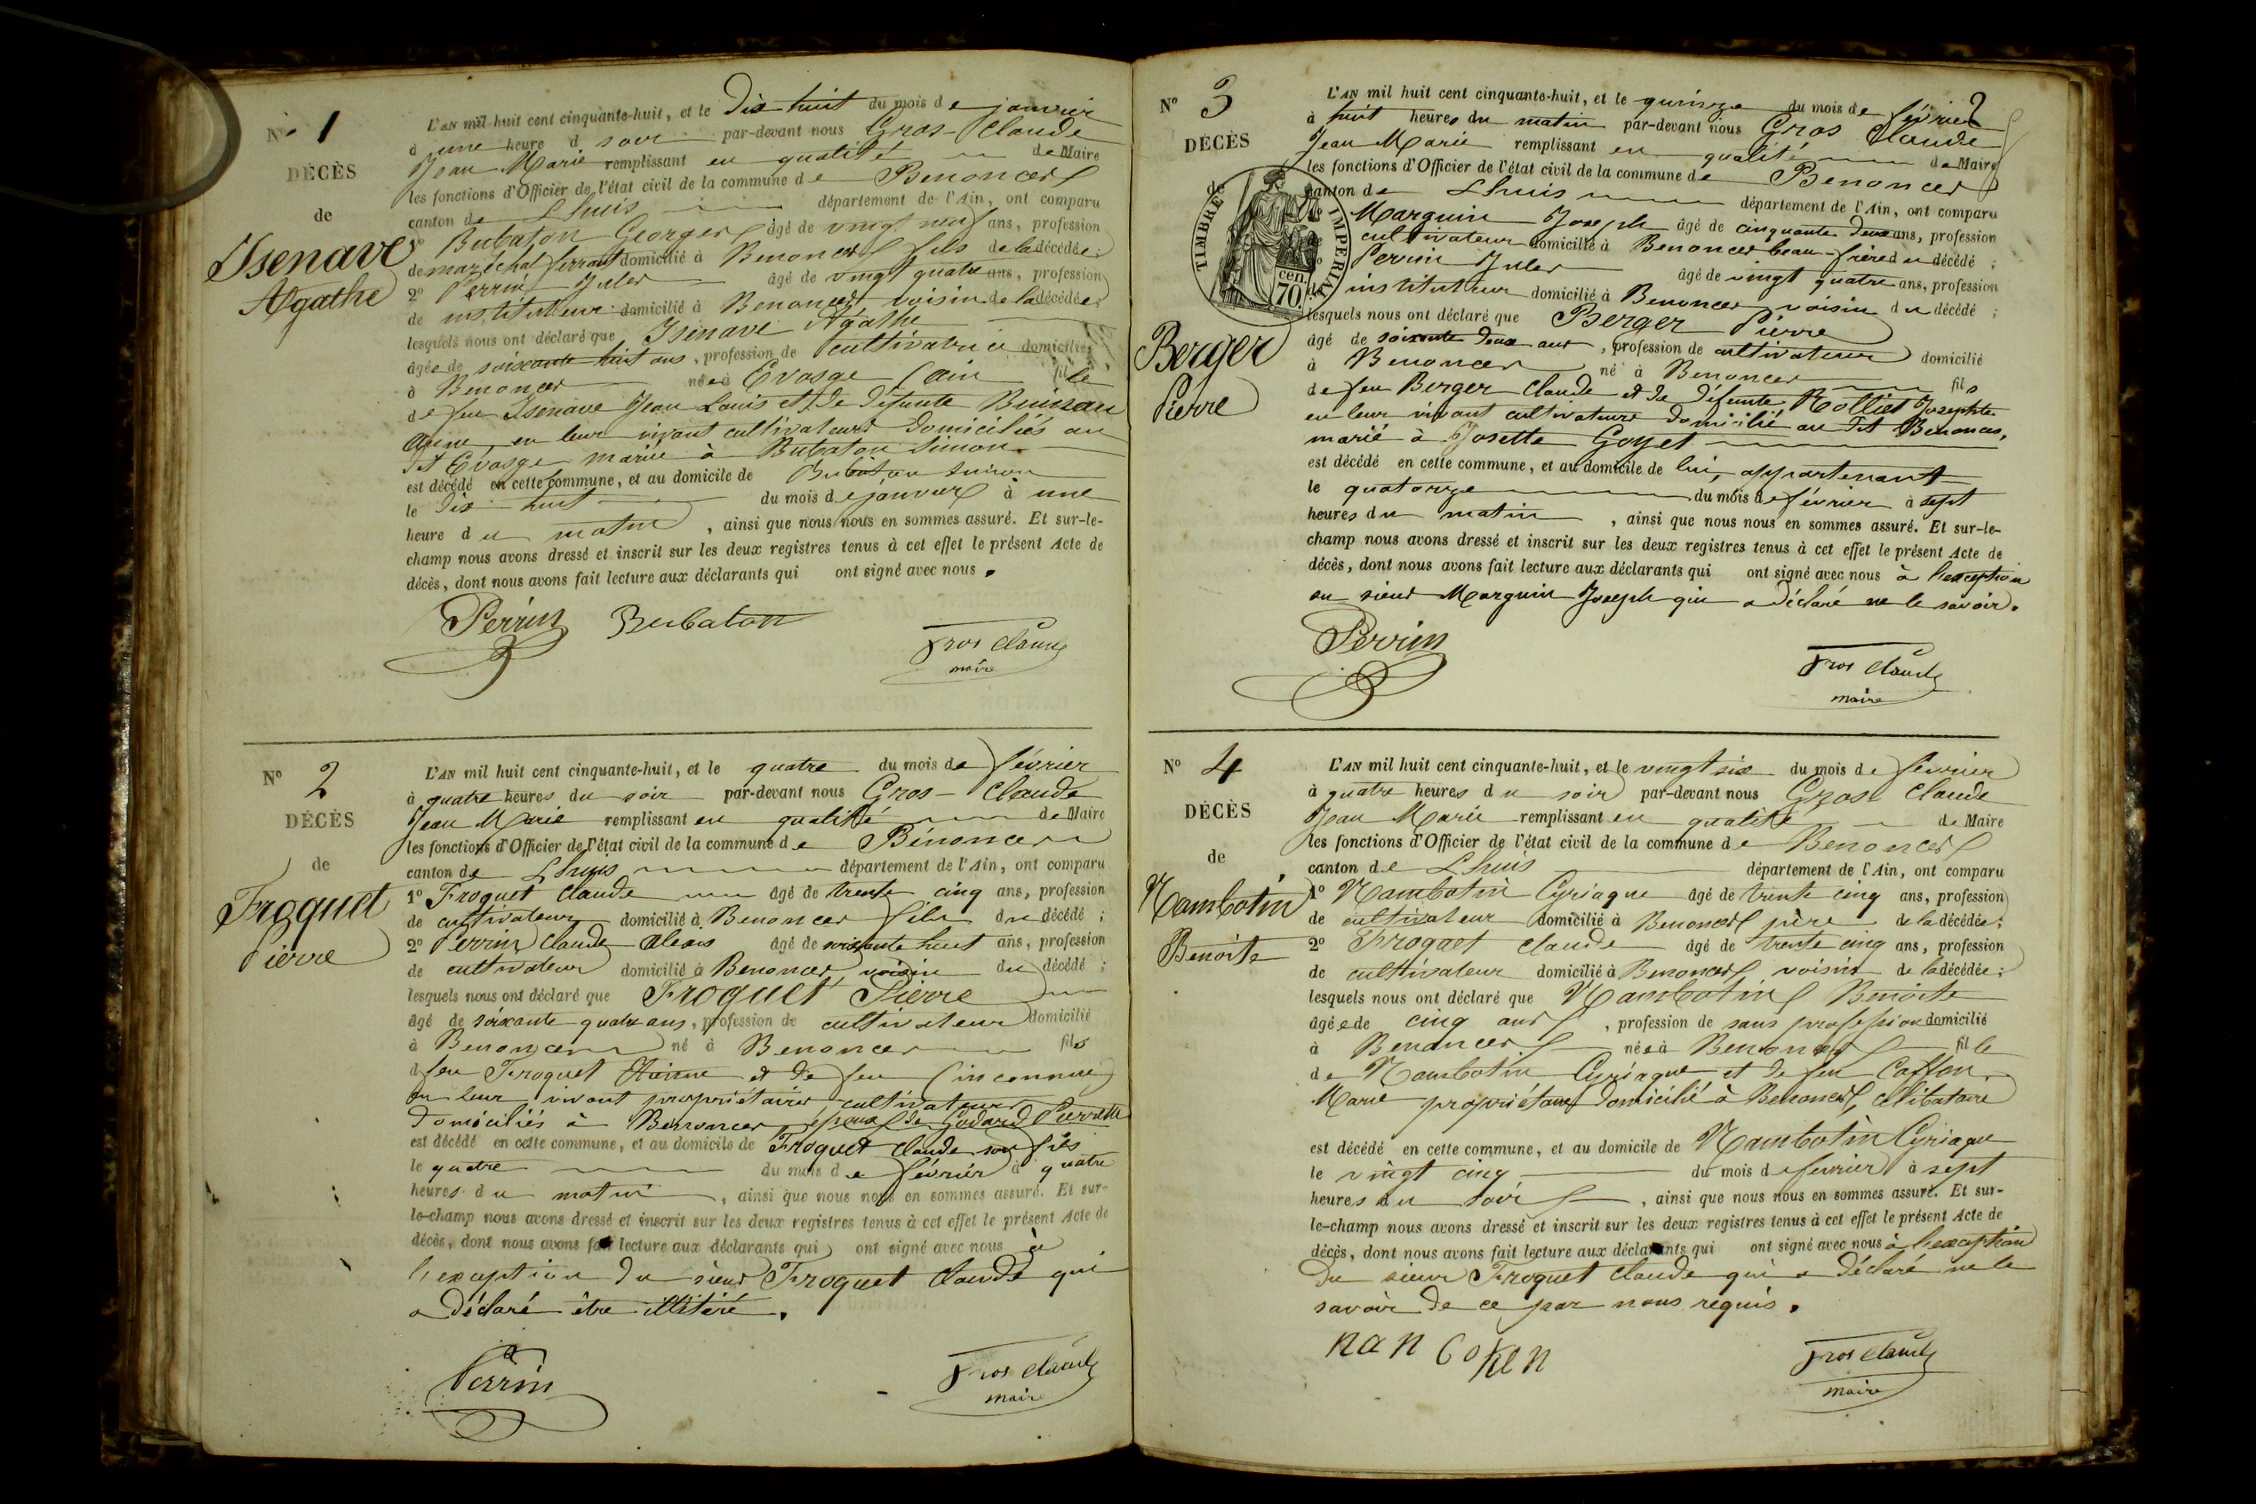 N° 1
DÉCÈS
de
Isenave
Agathe
L'AN mil huit cent cinquante-huit, et le Dix huit du mois de janvier
à une heure d soir par-devant nous Gros-Claude
Jean Marie remplissant en qualité de Maire
les fonctions d'Officier de l'état civil de la commune de Benonces
canton de Lhuis département de l'Ain, ont comparu
1° Bubaton Georges âgé de vingt neuf ans, profession
de maréchal ferrant domicilié à Benonces fils de la décédée;
2° Perrin Jules âgé de vingt quatre ans, profession
de instituteur domicilié à Benonces voisin de la décédée;
lesquels nous ont déclaré que Isenave Agathe
âgée de soixante huit ans, profession de cultivatrice domicilié
à Benonces née à Evosge (ain fille
de feu Isenave Jean Louis et de défunte
en leur vivant cultivateurs domiciliés au
dit Evosge mariée à Bubaton Simon
est décédé en cette commune, et au domicile de Bubaton Simon
le dix huit du mois de janvier à une
heure du matin, ainsi que nous nous en sommes assuré. Et sur-le-
champ nous avons dressé et inscrit sur les deux registres tenus à cet effet le présent Acte de
décès, dont nous avons fait lecture aux déclarants qui ont signé avec nous.
Perrin Bubaton
Gros Claude
maire
N° 2
DÉCÈS
de
Froquet
Pierre
L'AN mil huit cent cinquante-huit, et le quatre du mois de février
à quatre heures du soir par-devant nous Gros-Claude
Jean Marie remplissant en qualité de Maire
les fonctions d'Officier de l'état civil de la commune de Bénonces
canton de Lhuis département de l'Ain, ont comparu
1° Froquet Claude âgé de trente cinq ans, profession
de cultivateur domicilié à Benonces fils du décédé;
2° Perrin Claude alexis âgé de soixante huit ans, profession
de cultivateur domicilié à Benonces voisin du décédé;
lesquels nous ont déclaré que Froquet Pierre
âgé de soixante quatre ans, profession de cultivateur domicilié
à Benonces né à Benonces fils
d feu Froquet Etienne et de feu (inconnue)
en leur vivant propriétaires cultivateurs
domiciliés à Benonces époux de Godard Pierrette
est décédé en cette commune, et au domicile de Froquet Claude son fils
le quatre du mois de février à quatre
heures du matin, ainsi que nous nous en sommes assuré. Et sur-
le-champ nous avons dressé et inscrit sur les deux registres tenus à cet effet le présent Acte de
décès, dont nous avons fait lecture aux déclarants qui ont signé avec nous à
l'exception du sieur Froquet Claude qui
a déclaré être illitéré.
Perrin
Gros Claude
maire
2
N° 3
DÉCÈS
de
Berger
Pierre
TIMBRE IMPERIAL
70 cen.
L'AN mil huit cent cinquante-huit, et le quinze du mois de février
à huit heures du matin par-devant nous Gros Claude
Jean Marie remplissant en qualité de Maire
les fonctions d'Officier de l'état civil de la commune de Benonces
canton de Lhuis département de l'Ain, ont comparu
Marguin Joseph âgé de cinquante deux ans, profession
cultivateur domicilié à Benonces beau-frère du décédé;
Perrin Jules âgé de vingt quatre ans, profession
instituteur domicilié à Benonces voisin du décédé;
lesquels nous ont déclaré que Berger Pierre
âgé de soixante deux ans, profession de cultivateur domicilié
à Benonces né à Benonces fils
de feu Berger Claude et de défunte Rolliet Josephte
en leur vivant cultivateurs domicilié au dit Benonces,
marié à Josette Goyet
est décédé en cette commune, et au domicile de lui, appartenant
le quatorze du mois de février à sept
heures du matin, ainsi que nous nous en sommes assuré. Et sur-le-
champ nous avons dressé et inscrit sur les deux registres tenus à cet effet le présent Acte de
décès, dont nous avons fait lecture aux déclarants qui ont signé avec nous à l'exception
du sieur Marguin Joseph qui a déclaré ne le savoir.
Perrin
Gros Claude
maire
N° 4
DÉCÈS
de
Nambotin
Benoite
L'AN mil huit cent cinquante-huit, et le vingt six du mois de février
à quatre heures du soir par-devant nous Gros Claude
Jean Marie remplissant en qualité de Maire
les fonctions d'Officier de l'état civil de la commune de Benonces
canton de Lhuis département de l'Ain, ont comparu
1° Nambotin Cyriaque âgé de trente cinq ans, profession
de cultivateur domicilié à Benonces père de la décédée;
2° Froquet Claude âgé de trente cinq ans, profession
de cultivateur domicilié à Benonces voisin de la décédée;
lesquels nous ont déclaré que Nambotin Benoite
âgée de cinq ans, profession de sans profession domicilié
à Benonces née à Benonces fille
de Nambotin Cyriaque et de feu Caffon
Marie propriétaires domicilié à Benonces, célibataire
est décédé en cette commune, et au domicile de Nambotin Cyriaque
le vingt cinq du mois de fevrier à sept
heures du soir, ainsi que nous nous en sommes assuré. Et sur-
le-champ nous avons dressé et inscrit sur les deux registres tenus à cet effet le présent Acte de
décès, dont nous avons fait lecture aux déclarants qui ont signé avec nous à l'exception
du sieur Froquet Claude qui a déclaré ne le
savoir de ce par nous requis.
Gros Claude
maire